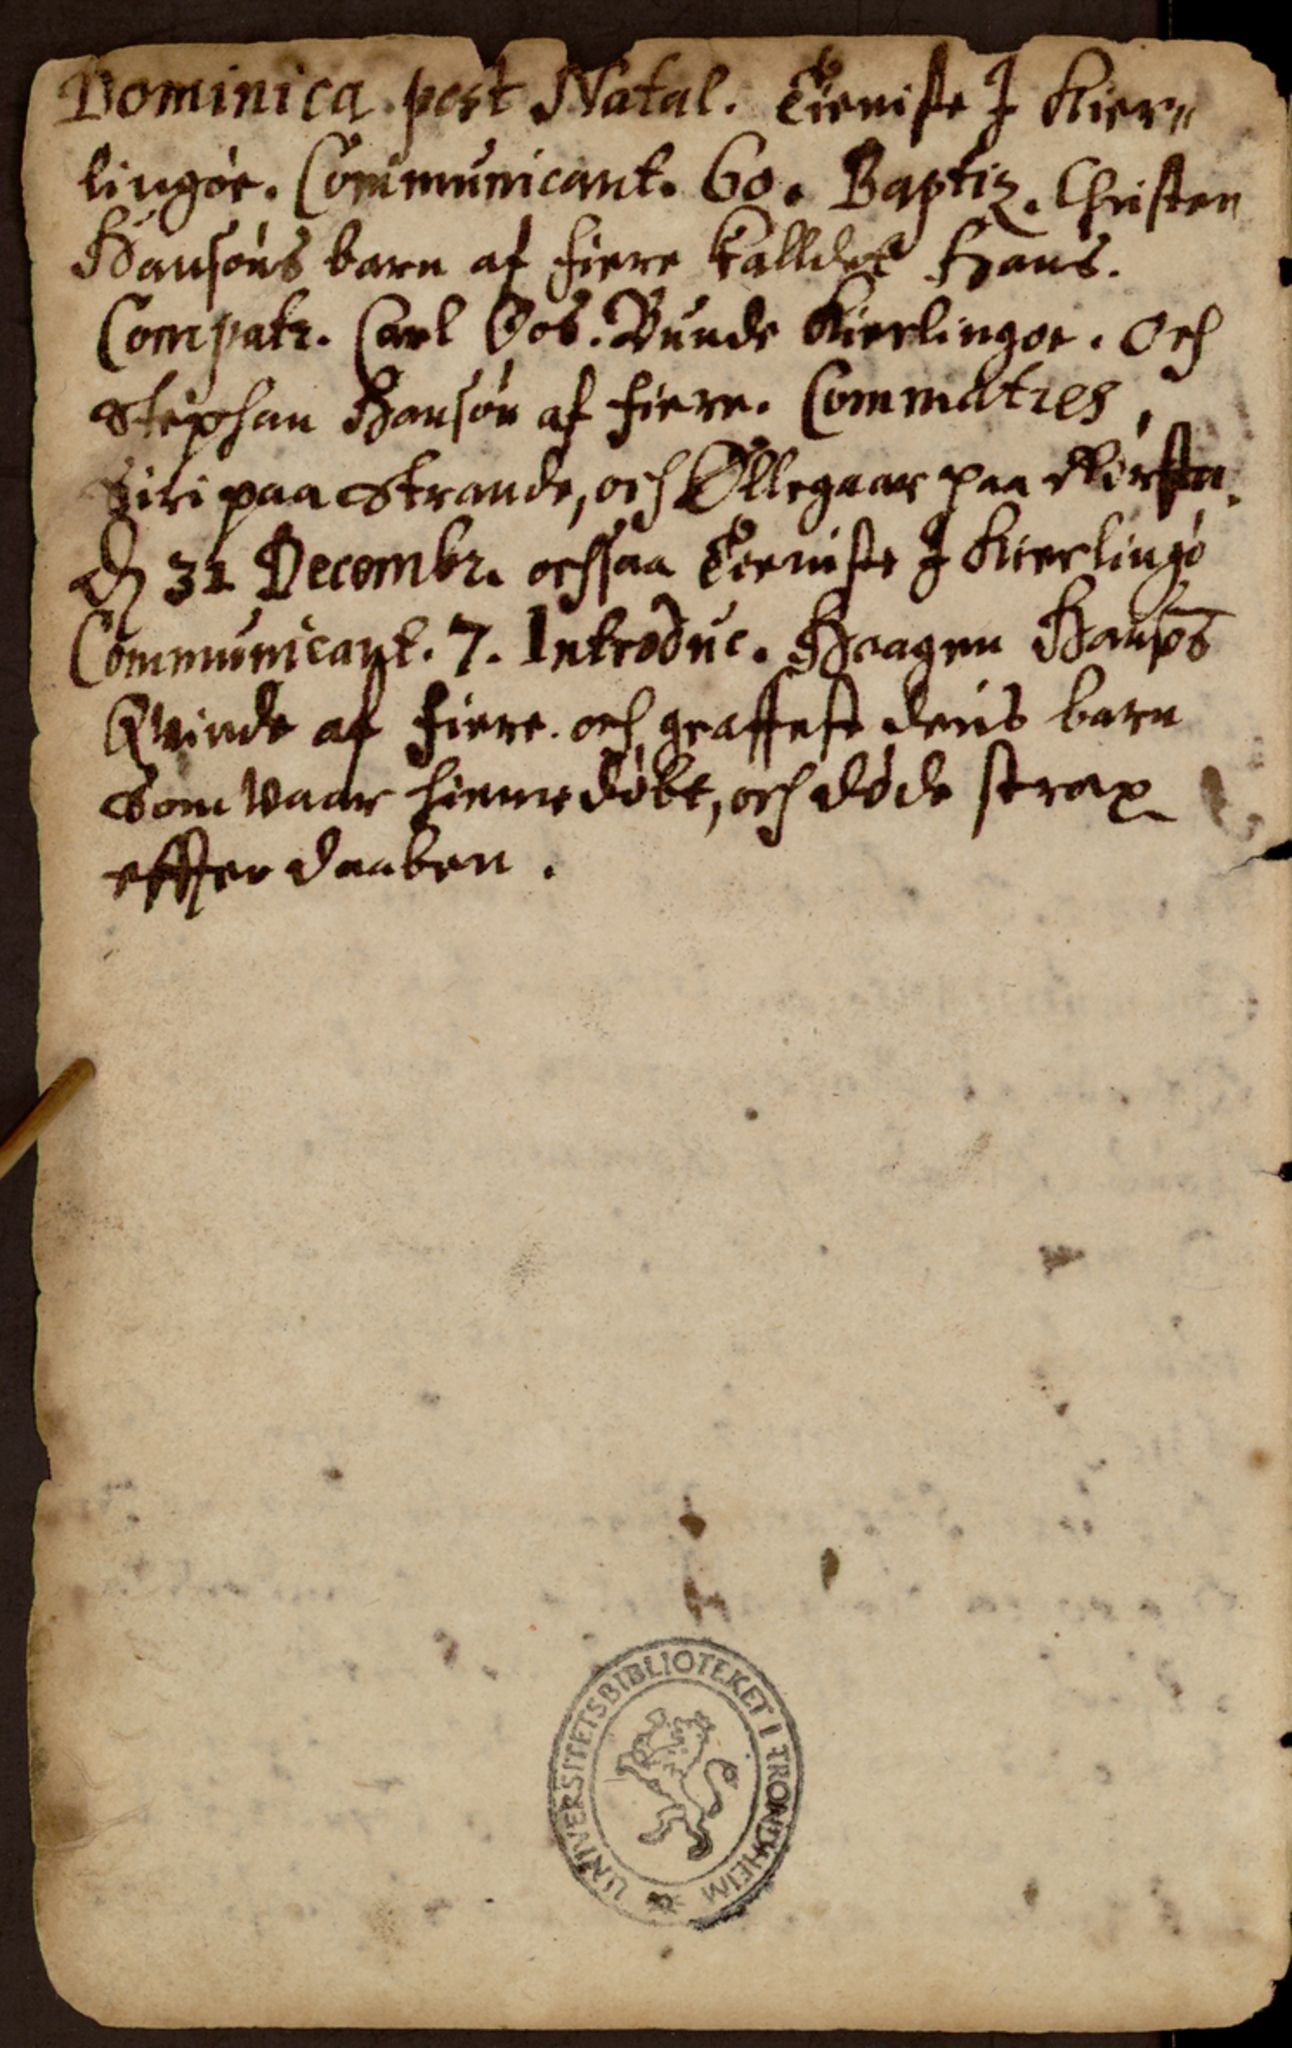 Dominica post Natal. Tieniste I Kier„
lingøe. Communicant. 60. Baptiz. Christen
Hansøns barn af fiere kalldet Hans.
Compatr. Carl Bos. Bunde Kierlingøe. Och
Stephan Hansøn af fiere. Commatres,
Siri paa Strande, och Ollegaar paa
D 31 Decembr. ochsaa Tieniste I Kierlingø
Communicant. 7. Introduc. Haagen Hansøs
Qvinde af fiere. och graffeste deris barn
Som vaar hiemedøbt, och døde strax
effter daaben.
UNIVERSITETSBIBLIOTEKET I TRONDHEIM